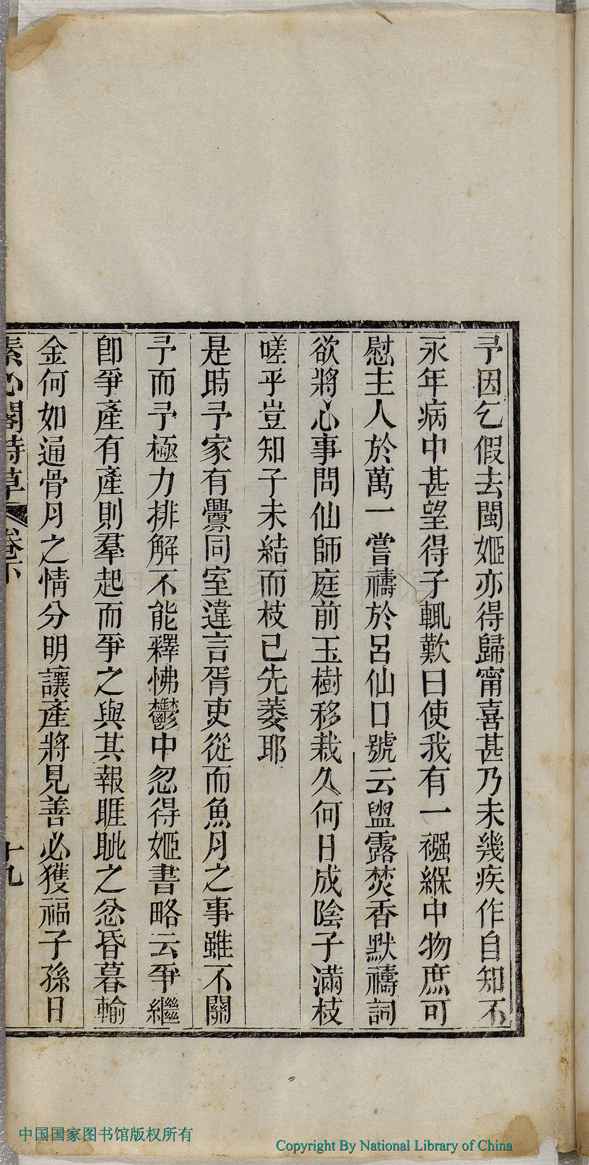 予因乞假去閩姬亦得歸甯喜甚乃未幾疾作自知不
永年病中甚望得子輒歎曰使我有一襁緥中物庶可
慰主人於萬一嘗禱於呂仙口號云盥露焚香默禱詞
欲將心事問仙師庭前玉樹移栽久何日成陰子滿枝
嗟乎豈知子未結而枝已先萎耶
是時予家有釁同室違言胥吏從而魚肉之事雖不關
予而予極力排解不能釋怫鬱中忽得姬書略云爭繼
卽爭產有產則羣起而爭之與其報睚眦之忿昏暮輸
金何如通骨肉之情分明讓產將見善必獲福子孫日
素心閣詩草 卷下 十九
中国国家图书馆版权所有
Copyright By National Library of China